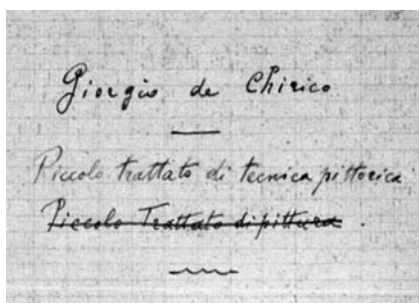 Giorgio de Chirico
Piccolo trattato di tecnica pittorica
Piccolo Trattato di pittura.